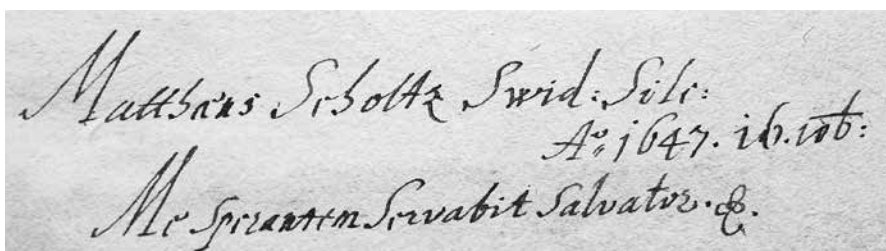 Matthæus Scholtz Swid: Siles:
Ao. 1647. 16. 10b:
Me Sperantem Servabit Salvator. &.